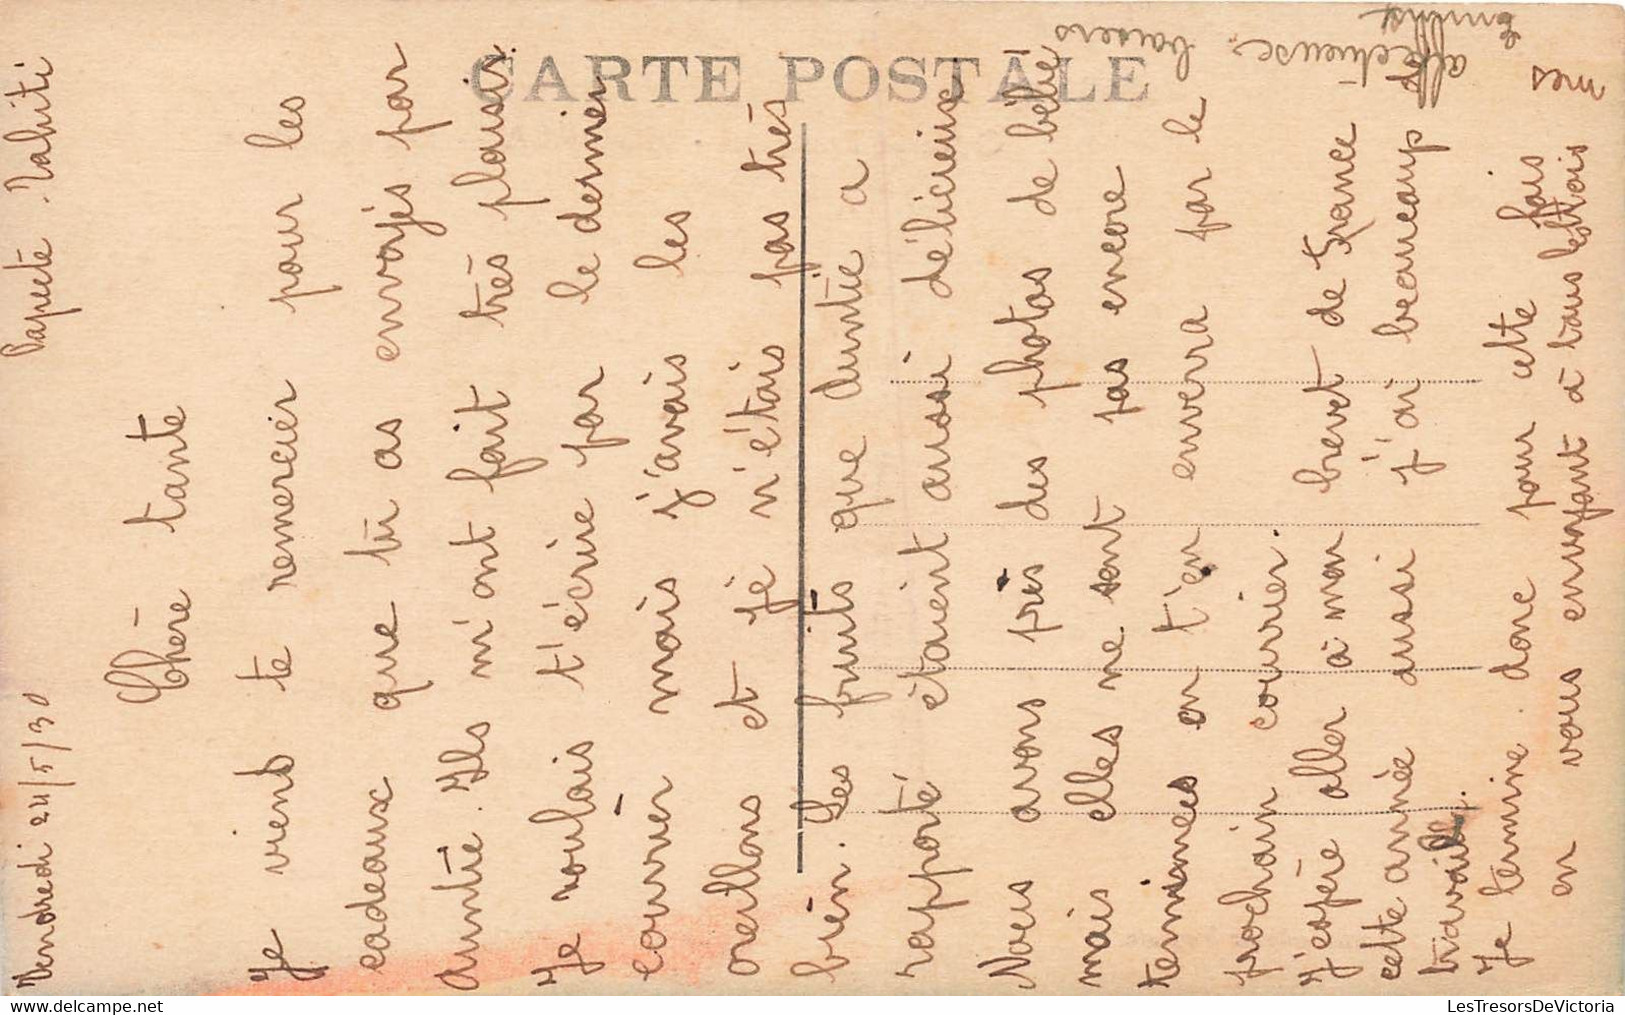 CARTE POSTALE
Vendredi 24/5/30 Papeete Tahiti
Chère tante
Je viens te remercier pour les
cadeaux que tu as envoyés par
Auntie. Ils m'ont fait très plaisir.
Je voulais t'écrire par le dernier
courrier mais j'avais les
oreillons et je n'étais pas très
bien. Les fruits que Auntie a
rapporté étaient aussi délicieux
Nous avons pris des photos de bébé
mais elles ne sont pas encore
terminées on t'en enverra par le
prochain courrier.
J'espère aller à mon brevet de France
cette année aussi j'ai beaucoup de
travail.
Je termine donc pour cette fois
en vous envoyant à tous
mes
affectueuse
baisers
LesTresorsDeVictoria.com